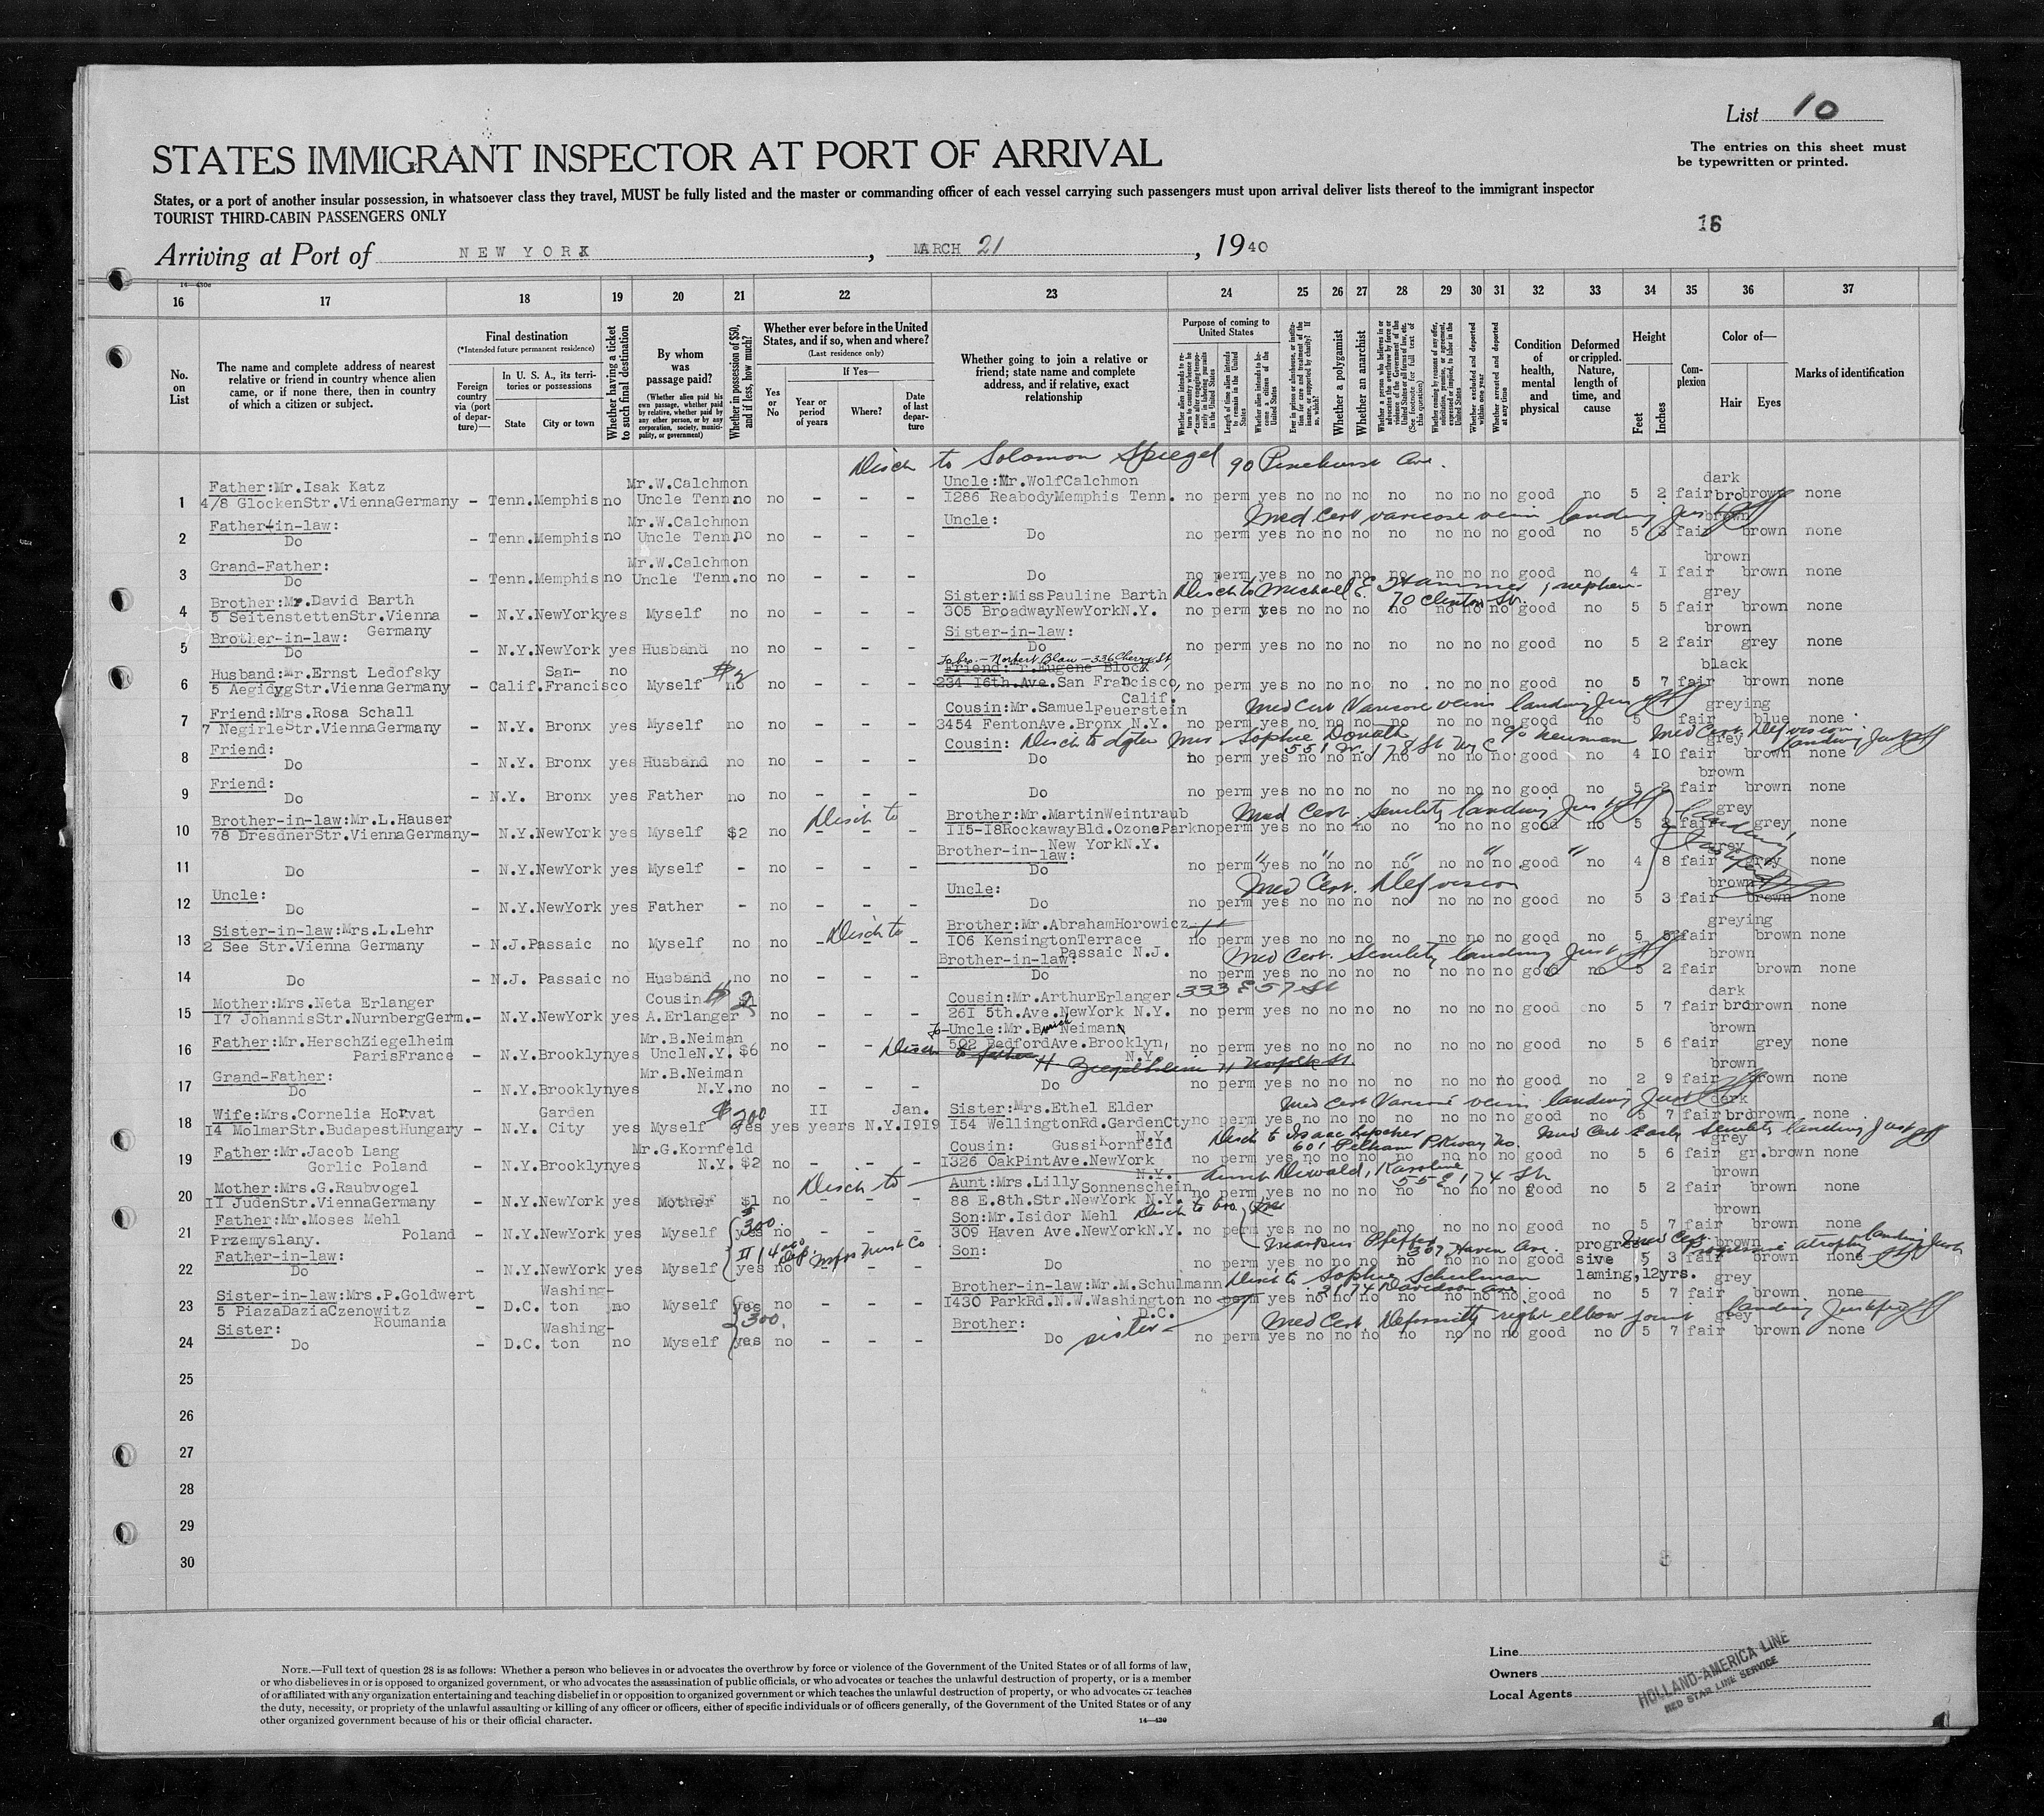 List 10
The entries on this sheet must
be typewritten or printed.
STATES IMMIGRANT INSPECTOR AT PORT OF ARRIVAL
States, or a port of another insular possession, in whatsoever class they travel, MUST be fully listed and the master or commanding officer of each vessel carrying such passengers must upon arrival deliver lists thereof to the immigrant inspector
TOURIST THIRD-CABIN PASSENGERS ONLY
16
Arriving at Port of NEW YORK, MARCH 21, 1940
16 17 18 19 20 21 22 23 24 25 26 27 28 29 30 31 32 33 34 35 36 37
No. on List
The name and complete address of nearest relative or friend in country whence alien came, or if none there, then in country of which a citizen or subject.
Final destination
(*Intended future permanent residence)
Foreign country via (port of departure)—
In U. S. A., its territories or possessions
State
City or town
Whether having a ticket to such final destination
By whom was passage paid?
(Whether alien paid his own passage, whether paid by relative, whether paid by any other person, or by any corporation, society, municipality, or government)
Whether in possession of $50, and if less, how much?
Whether ever before in the United States, and if so, when and where?
(Last residence only)
Yes or No
If Yes—
Year or period of years
Where?
Date of last departure
Whether going to join a relative or friend; state name and complete address, and if relative, exact relationship
Purpose of coming to United States
Length of time alien intends to remain in the United States
Whether alien intends to become a citizen of the United States
Whether a polygamist
Whether an anarchist
Whether excluded and deported within one year
Whether arrested and deported at any time
Condition of health, mental and physical
Deformed or crippled. Nature, length of time, and cause
Height
Feet
Inches
Complexion
Color of—
Hair
Eyes
Marks of identification
Disch to Solomon Spiegel 90 Pinehurst Ave.
Father:Mr.Isak Katz Mr.W.Calchmon Uncle:Mr.WolfCalchmon dark
1 4/8 GlockenStr.ViennaGermany - Tenn.Memphis no Uncle Tenn.no no - - - 1286 ReabodyMemphis Tenn. no perm yes no no no no no no no good no 5 2 fair brobrown none
Father-in-law: Mr.W.Calchmon Uncle: Med Cert varicose vein landing Just brown
2 Do - Tenn.Memphis no Uncle Tenn.no no - - - Do no perm yes no no no no no no no good no 5 3 fair brown none
Grand-Father: Mr.W.Calchmon brown
3 Do - Tenn.Memphis no Uncle Tenn.no no - - - Do no perm yes no no no no no no no good no 4 I fair brown none
Brother:Mr.David Barth Sister:MissPauline Barth Disch to Michael E. Hammer, nephew 70 Clinton St. grey
4 5 SeitenstettenStr.Vienna Germany - N.Y.NewYorkyes Myself no no - - - 305 BroadwayNewYorkN.Y. no perm yes no no no no no no no good no 5 5 fair brown none
Brother-in-law: Sister-in-law: brown
5 Do - N.Y.NewYork yes Husband no no - - - Do no perm yes no no no no no no no good no 5 2 fair grey none
To bro.- Norbert Blau - 336 Cherry St,
Husband:Mr.Ernst Ledofsky San- no $2 Friend: r.Eugene Block black
6 5 AegidygStr.ViennaGermany - Calif.Francisco Myself no no - - - 234 I6th.Ave.San Francisco, Calif. no perm yes no no no no no no no good no 5 7 fair brown none
Friend:Mrs.Rosa Schall Cousin:Mr.Samuel Feuerstein Med Cert Varicose vein landing Just greying
7 7 NegirleStr.ViennaGermany - N.Y. Bronx yes Myself no no - - - 3454 FentonAve.Bronx N.Y. no perm yes no no no no no no no good no 5 fair blue none
Friend: Cousin: Disch to dgter Mrs Sophie Donath 551 W. 178 St NYC c/o Neuman Med Cert Def vision landing Just grey
8 Do - N.Y. Bronx yes Husband no no - - - Do no perm yes no no no no no no no good no 4 IO fair brown none
Friend: brown
9 Do - N.Y. Bronx yes Father no no - - - Do no perm yes no no no no no no no good no 5 2 fair brown none
Brother-in-law:Mr.L.Hauser Disch to Brother:Mr.MartinWeintraub Med Cert. Senility landing Just grey
10 78 DresdnerStr.ViennaGermany- N.Y.NewYork yes Myself $2 no - - - II5-I8RockawayBld.OzoneParknoperm New YorkN.Y. yes no no no no no no no good no 5 2 fair grey none
Brother-in-law: grey
11 Do - N.Y.NewYork yes Myself - no - - - Do no perm yes no no no no no no no good no 4 8 fair grey none
Uncle: Uncle: Med Cert. Def vision brown
12 Do - N.Y.NewYork yes Father - no - - - Do no perm yes no no no no no no no good no 5 3 fair brown none
Sister-in-law:Mrs.L.Lehr Disch to Brother:Mr.AbrahamHorowicz greying
13 2 See Str.Vienna Germany - N.J.Passaic no Myself no no - - - I06 KensingtonTerrace Passaic N.J. no perm yes no no no no no no no good no 5 fair brown none
Brother-in-law: Med Cert. Senility landing Just brown
14 Do - N.J. Passaic no Husband no no - - - Do no perm yes no no no no no no no good no 5 2 fair brown none
Mother:Mrs.Neta Erlanger Cousin $2 Cousin:Mr.ArthurErlanger 333 E 57 St dark
15 I7 JohannisStr.NurnbergGerm.- N.Y.NewYork yes A.Erlanger no - - - 26I 5th.Ave.NewYork N.Y. no perm yes no no no no no no no good no 5 7 fair brobrown none
Father:Mr.HerschZiegelheim Mr.B.Neiman To-Uncle:Mr.B Neimann brown
16 ParisFrance - N.Y.Brooklynyes UncleN.Y. $6 no - - - 502 BedfordAve.Brooklyn, N.Y. no perm yes no no no no no no no good no 5 6 fair grey none
Disch to father H Ziegelheim 71 Norfolk St.
Grand-Father: Mr.B.Neiman brown
17 Do - N.Y.Brooklynyes N.Y.no no - - - Do no perm yes no no no no no no no good no 2 9 fair brown none
Wife:Mrs.Cornelia Horvat Garden $200 II Jan. Sister:Mrs.Ethel Elder Med Cert Varicose vein landing Just dark
18 I4 MolmarStr.BudapestHungary - N.Y. City yes Myself yes yes years N.Y.I919 I54 WellingtonRd.GardenCty N.Y. no perm yes no no no no no no no good no 5 7 fair brobrown none
Father:Mr.Jacob Lang Mr.G.Kornfeld Cousin: Gussi Kornfeld Disch to Isaac 601 Pelham Pkway No. Med Cert Early Senility landing Just grey
19 Gorlic Poland - N.Y.Brooklynyes N.Y. $2 no - - - I326 OakPintAve.NewYork N.Y. no perm yes no no no no no no no good no 5 6 fair gr.brown none
Mother:Mrs.G.Raubvogel Disch to Aunt:Mrs.Lilly Sonnenschein aunt Diewald, Karoline 55 E 174 St brown
20 II JudenStr.ViennaGermany - N.Y.NewYork yes Mother $1 no - - - 88 E.8th.Str.NewYork N.Y. no perm yes no no no no no no no good no 5 2 fair brown none
Father:Mr.Moses Mehl $300 Son:Mr.Isidor Mehl Disch to bro brown
21 Przemyslany. Poland - N.Y.NewYork yes Myself yes no - - - 309 Haven Ave.NewYorkN.Y. no perm yes no no no no no no no good no 5 7 fair brown none
Father-in-law: Mfrs Trust Co Son: Markus Pfeffer 307 Haven Ave. progres Med Cert Progressive atrophy landing Just brown
22 Do - N.Y.NewYork yes Myself yes no - - - Do no perm yes no no no no no no no good sive 5 3 fair brown none
laming,12yrs.
Sister-in-law:Mrs.P.Goldwert Washing- Brother-in-law:Mr.M.Schulmann Disch to Sophie Schulman 2174 Davidson Ave grey
23 5 PiazaDaziaCzenowitz Roumania - D.C. ton no Myself yes 300. no - - - I430 ParkRd.N.W.Washington D.C. no perm yes no no no no no no no good no 5 7 fair brown none
Sister: Washing- Brother: Med Cert Deformity right elbow joint landing Justified grey
24 Do - D.C. ton no Myself yes no - - - Do sister- no perm yes no no no no no no no good no 5 7 fair brown none
25
26
27
28
29
30
NOTE.—Full text of question 28 is as follows: Whether a person who believes in or advocates the overthrow by force or violence of the Government of the United States or of all forms of law,
or who disbelieves in or is opposed to organized government, or who advocates the assassination of public officials, or who advocates or teaches the unlawful destruction of property, or is a member
of or affiliated with any organization entertaining and teaching disbelief in or opposition to organized government or which teaches the unlawful destruction of property, or who advocates or teaches
the duty, necessity, or propriety of the unlawful assaulting or killing of any officer or officers, either of specific individuals or of officers generally, of the Government of the United States or of any
other organized government because of his or their official character.
14—430
Line
Owners
Local Agents
HOLLAND-AMERICA LINE
RED STAR LINE SERVICE